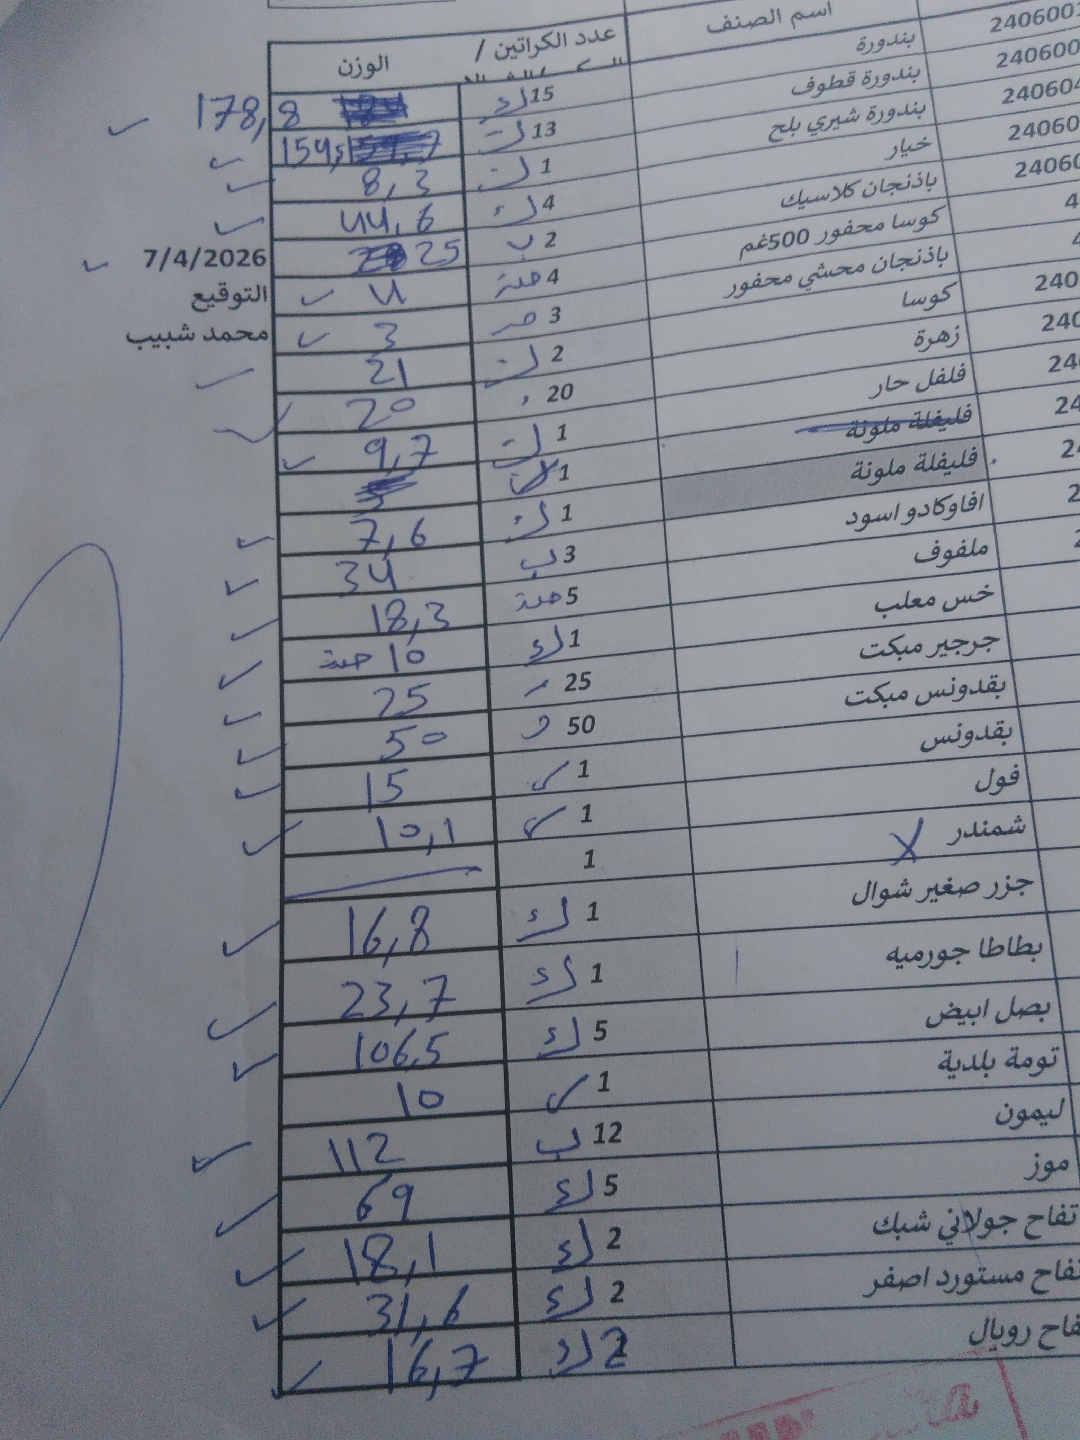 اسم الصنف عدد الكراتين / الوزن
2406001 بندورة 15 ك 178,8
240600 بندورة قطوف 13 154,
240604 بندورة شيري بلح 1 8,3
24060 خيار 4 44,6
24060 باذنجان كلاسيك 2 ب 25 7/4/2026
4 كوسا محفور 500غم 4 حبة 4 التوقيع
4 باذنجان محشي محفور 3 3 محمد شبيب
240 كوسا 2 21
240 زهرة 20 20
240 فلفل حار 1 9,7
24 فليفلة ملونة 1
24 فليفلة ملونة 1 7,6
2 افاوكادو اسود 3 ب 34
2 ملفوف 5 18,3
خس معلب 1 10
جرجير مبكت 25 25
بقدونس مبكت 50 50
بقدونس 1 15
فول 1 10,1
شمندر X 1
جزر صغير شوال 1 16,8
بطاطا جورميه 1 23,7
بصل ابيض 5 106,5
تومة بلدية 1 10
ليمون 12 ب 112
موز 5 69
تفاح جولاني شبك 2 18,1
تفاح مستورد اصفر 2 31,6
فاح رويال 2 16,7